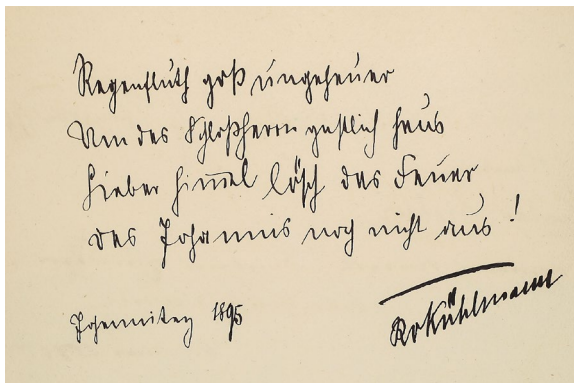 Regenfluth groß ungeheuer
Um des Schloßherrn gastlich Haus
Lieber Himmel lösch das Feuer
des Johannis noch nicht aus!
Johannitag 1895
RvKühlmann